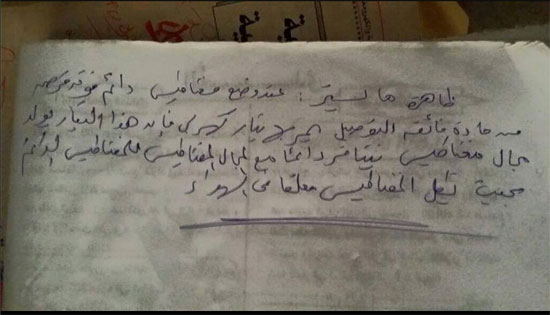 ظاهرة مايسنر : عند وضع مغناطيس دائم فوق قرص
من مادة فائقة التوصيل يمر بها تيار كهربى فإن هذا التيار يولد
مجال مغناطيسى يتنافر دائما مع المجال المغناطيسى للمغناطيس الدائم
بحيث يظل المغناطيس معلقا فى الهواء